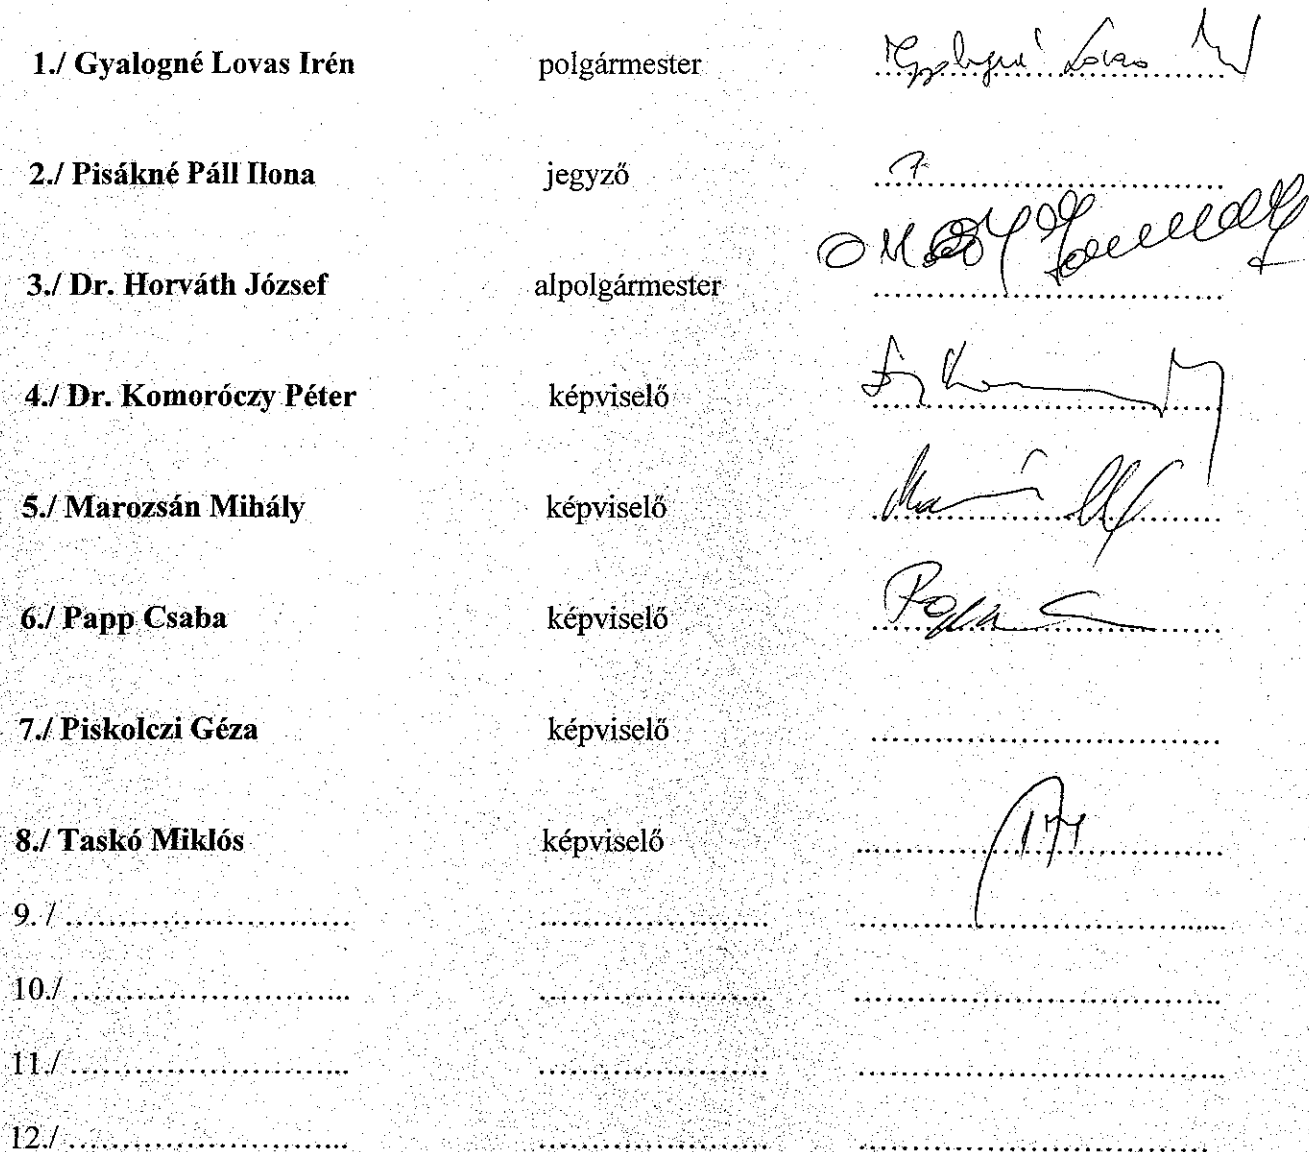 1./ Gyalogné Lovas Irén polgármester Gyalogné Lovas
2./ Pisákné Páll Ilona jegyző ..............................
3./ Dr. Horváth József alpolgármester ..............................
4./ Dr. Komoróczy Péter képviselő ..............................
5./ Marozsán Mihály képviselő ..............................
6./ Papp Csaba képviselő Papp
7./ Piskolczi Géza képviselő ..............................
8./ Taskó Miklós képviselő ..............................
9. / .......................... .......................... ..............................
10./ .......................... .......................... ..............................
11./ .......................... .......................... ..............................
12./ .......................... .......................... ..............................